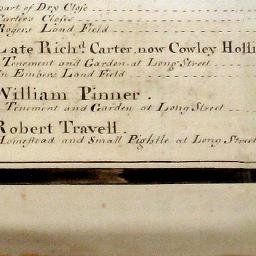 part of Dry Close
Carter's Closes
Rogers Land Field
Late Rich.d Carter, now Cowley Holli
Tenement and Garden at Long Street
In Embers Land Field
William Pinner.
Tenement and Garden at Long Street
Robert Travell.
Homestead and Small Pightle at Long Street